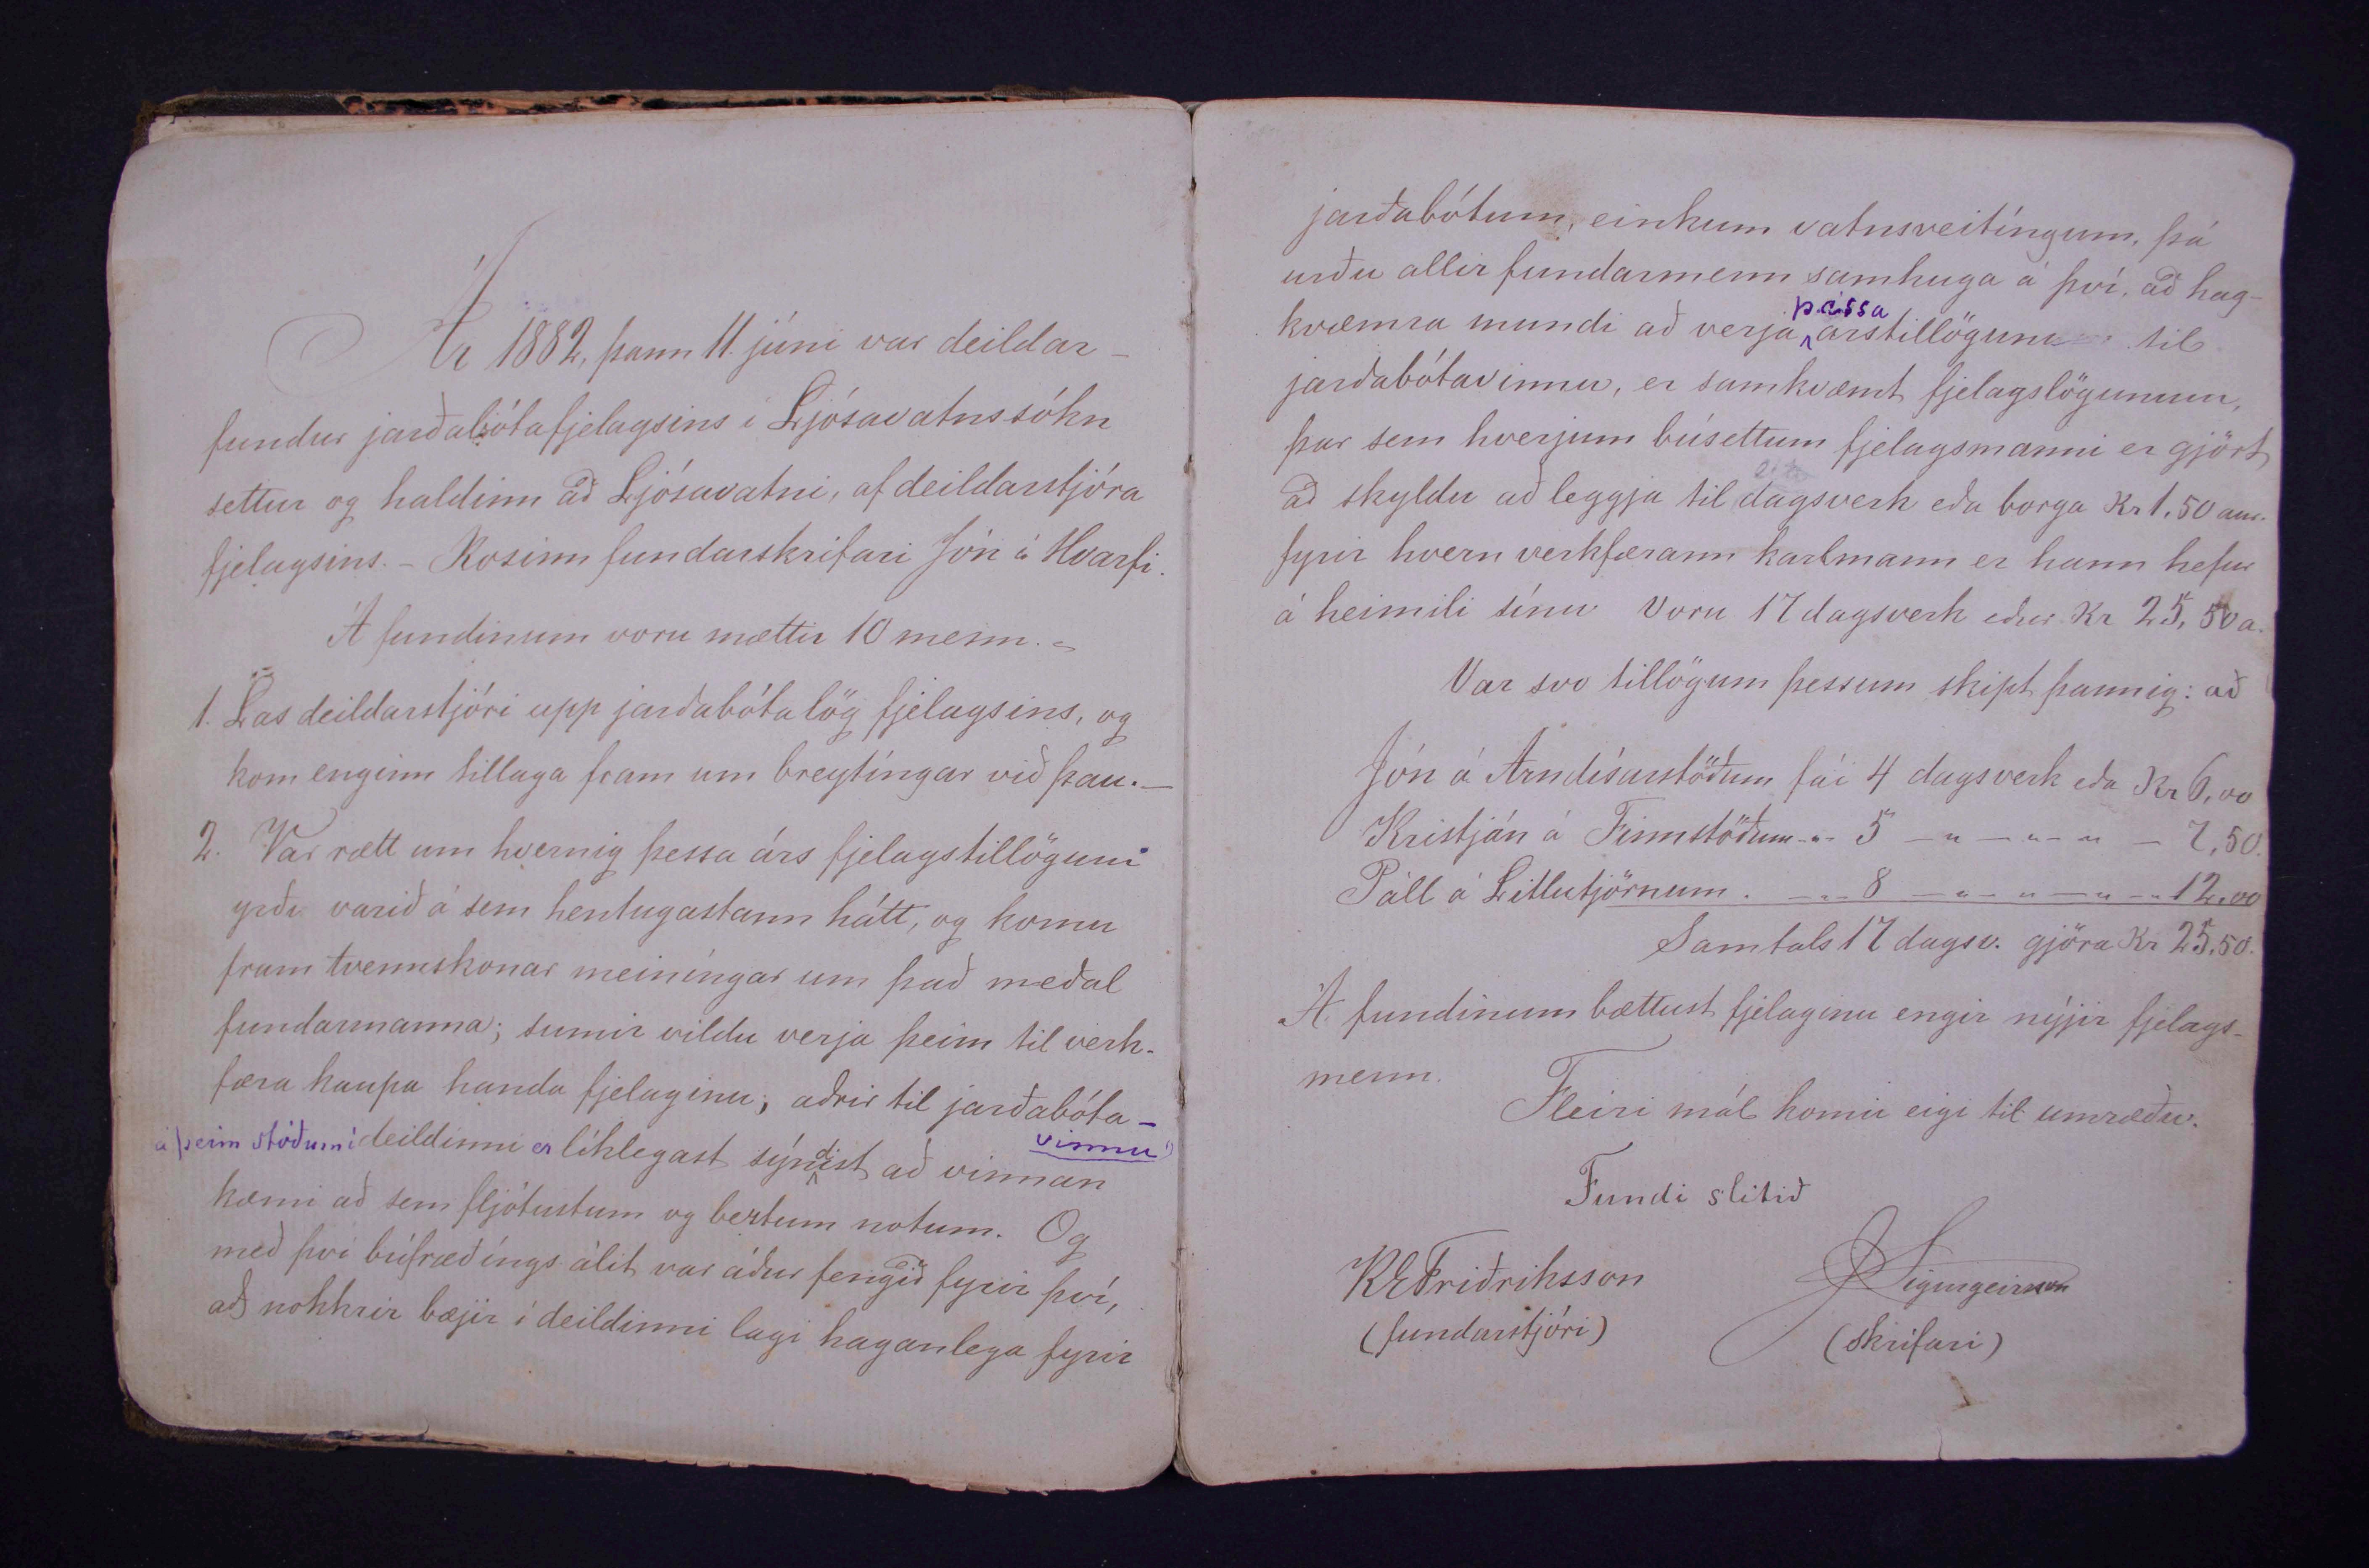 Ár 1882, þann 11. júni var deildar-
fundur jarðabótafjelagsins i Ljósavatnssókn
settur og haldinn að Ljósavatni, af deildarstjóra
fjelagsins. - Kosinn fundarskrifari Jón á Hvarfi.
Á fundinum voru mættir 10 menn. -
1. Las deildarstjóri upp jarðabótalög fjelagsins, og
kom enginn tillaga fram um breytíngar við þau. -
2. Var rætt um hvernig þessa árs fjelagstillögum
yrði varið á sem hentugastann hátt, og komu
fram tvennskonar meiníngar um það meðal
fundarmanna; sumir vildu verja þeim til verk-
færa kaupa handa fjelaginu; aðrir til jarðabóta-
vinnu
á þeim stöðum i deildinni er líklegast sýndist að vinnan
kæmi að sem fljótustum og beztum notum. Og
með því búfræðíngs álit var áður fengið fyrir því,
að nokkrir bæjir i deildinni lagi haganlega fyrir
jarðabótum, einkum vatnsveitíngum, þá
urðu allir fundarmenn samhuga á því, að hag-
kvæmra mundi að verja þessa árstillögum til
jarðabótavinnu, er samkvæmt fjelagslögunum,
þar sem hverjum búsettum fjelagsmanni er gjört
að skyldu að leggja til dagsverk eða borga Kr 1.50 aur.
fyrir hvern verkfærann karlmann er hann hefur
á heimili sínu voru 17 dagsverk eður Kr 25,50 a.
Var svo tillögum þessum skipt þannig: að
Jón á Arndísarstöðum fái 4 dagsverk eða Kr 6,00
Kristján á Finnstöðum -„- 5 -„- -„- -„- 7,50.
Páll á Litlutjörnum. -„- 8 -„- -„- -„- 12,00
Samtals 17 dagsv. gjöra Kr 25,50.
Á fundinum bættust fjelaginu engir nýjir fjelags-
menn.
Fleiri mál komu eigi til umræðu.
Fundi slitið
KEFriðriksson
JSigurgeirsson
(fundarstjóri)
(skrifari)